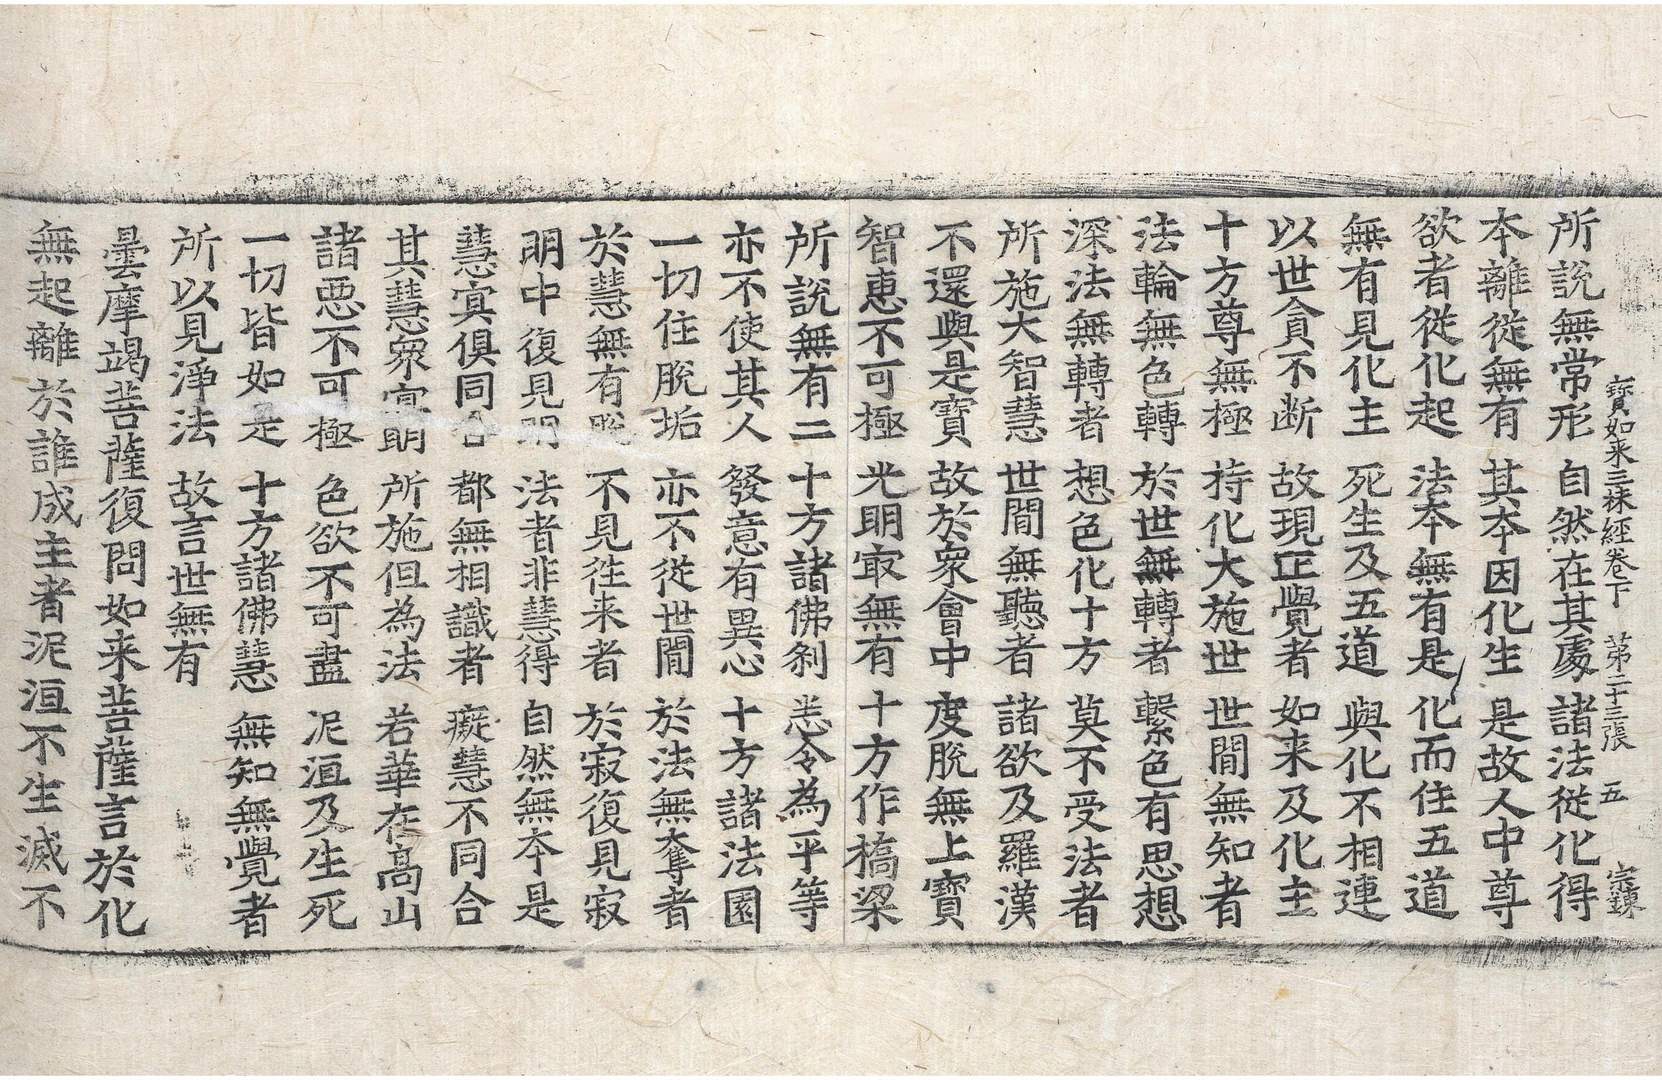 寶如来三昧經卷下 第二十三張 五 宗鍊
所說無常形 自然在其處 諸法從化得
本離從無有 其本因化生 是故人中尊
欲者從化起 法本無有是 化而住五道
無有見化主 死生及五道 與化不相連
以世貪不断 故現正覺者 如来及化主
十方尊無極 持化大施世 世間無知者
法輪無色轉 於世無轉者 繫色有思想
深法無轉者 想色化十方 莫不受法者
所施大智慧 世間無聽者 諸欲及羅漢
不還與是寶 故於衆會中 度脫無上寶
智惠不可極 光明㝡無有 十方作橋梁
所說無有二 十方諸佛刹 悉令為平等
亦不使其人 發意有異心 十方諸法園
一切住脫垢 亦不從世間 於法無奪者
於慧無有脫 不見徃来者 於寂復見寂
明中復見明 法者非慧得 自然無本是
慧㝠俱同合 都無相識者 癡慧不同合
其慧衆㝠明 所施但為法 若華在高山
諸惡不可極 色欲不可盡 泥洹及生死
一切皆如是 十方諸佛慧 無知無覺者
所以見淨法 故言世無有
曇摩竭菩薩復問如来菩薩言於化
無起離於誰成主者泥洹不生滅不